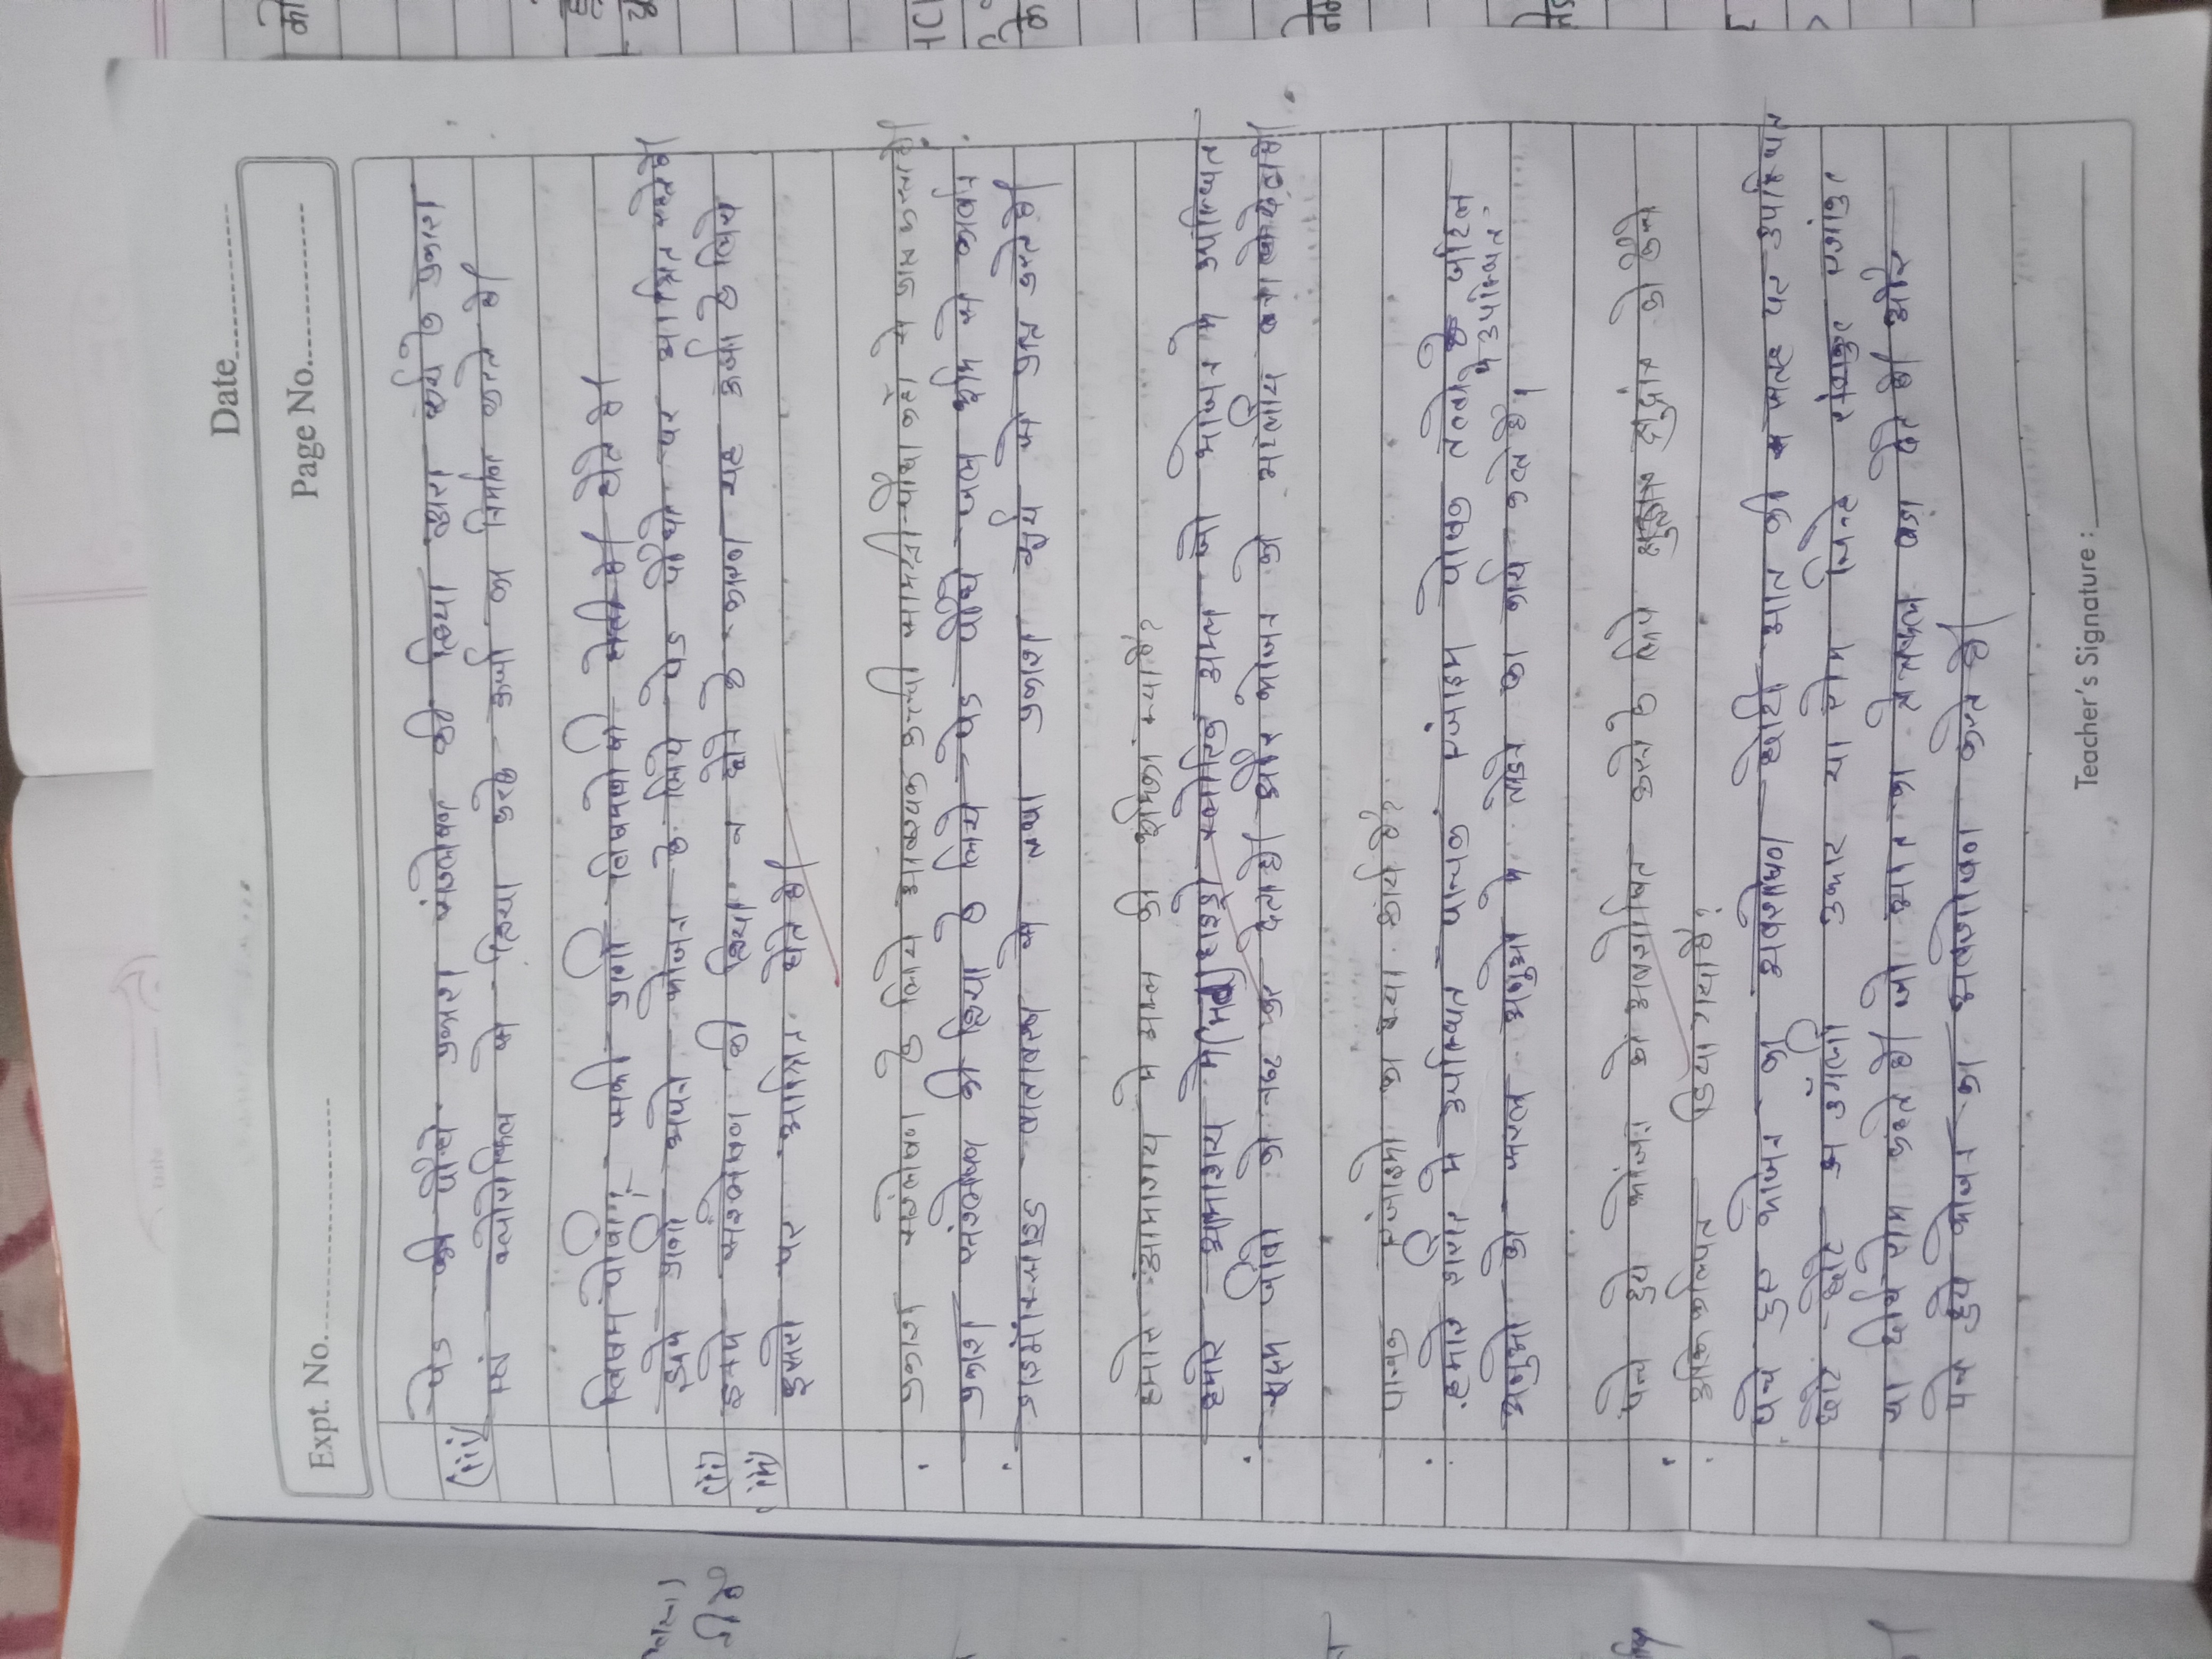 Date
Expt. No.
Page No.
(iii) पेड की पौधे प्रकाश संश्लेषण की क्रिया द्वारा सूर्य के प्रकाश
एवं क्लोरोफिल से क्रिया करके ऊर्जा का निर्माण करते है।
विषम पोषी सभी प्राणी विषमपोषी होते है।
(ii) प्राणी अपने भोजन के लिये पेड पौधो पर आश्रित रहते है।
(iii) इनमे संश्लेषण की क्रिया न होने के कारण यह ऊर्जा के लिये
दुसरो पर आश्रित होते है।
प्रकाश संश्लेषण के लिये आवश्यक कच्ची सामग्री पौधा कहाँ से प्राप्त करता है।
प्रकाश संश्लेषण की क्रिया के लिये पेड पौधे जल भूमि से कार्बन
डाइऑक्साइड वातावरण से तथा प्रकाश सूर्य से प्राप्त करते है।
हमारे आमाशय मे अम्ल की भूमिका क्या है?
हमारे आमाशय मे हाइड्रो क्लोरिक अम्ल जो भोजन मे उपस्थित
सूक्ष्म जीवो को नष्ट कर देता है। और भोजन को अम्लीय बना देता है।
पाचक एंजाइमो का क्या कार्य है?
हमारे शरीर मे उपस्थित पाचक एंजाइम पोषक तत्वो के जटिल
मे उपस्थित
अनुओ को सरल अनुओ मे तोडने का कार्य करते है।
पचे हुये भोजन को अवशोषित करने के लिये क्षुद्रांत्र को कैसे
अभिकल्पित किया गया है?
पचे हुए भोजन का अवशोषण छोटी आत की सतह पर उपस्थित
छोटे छोटे उॅगली उभार या रोम जिन्हे रसांकुर
या दीर्घ रोम कहते है। जो आत का क्षेत्रफल बडा देते है। और
पचे हुये भोजन का अवशोषण करते है।
Teacher's Signature :